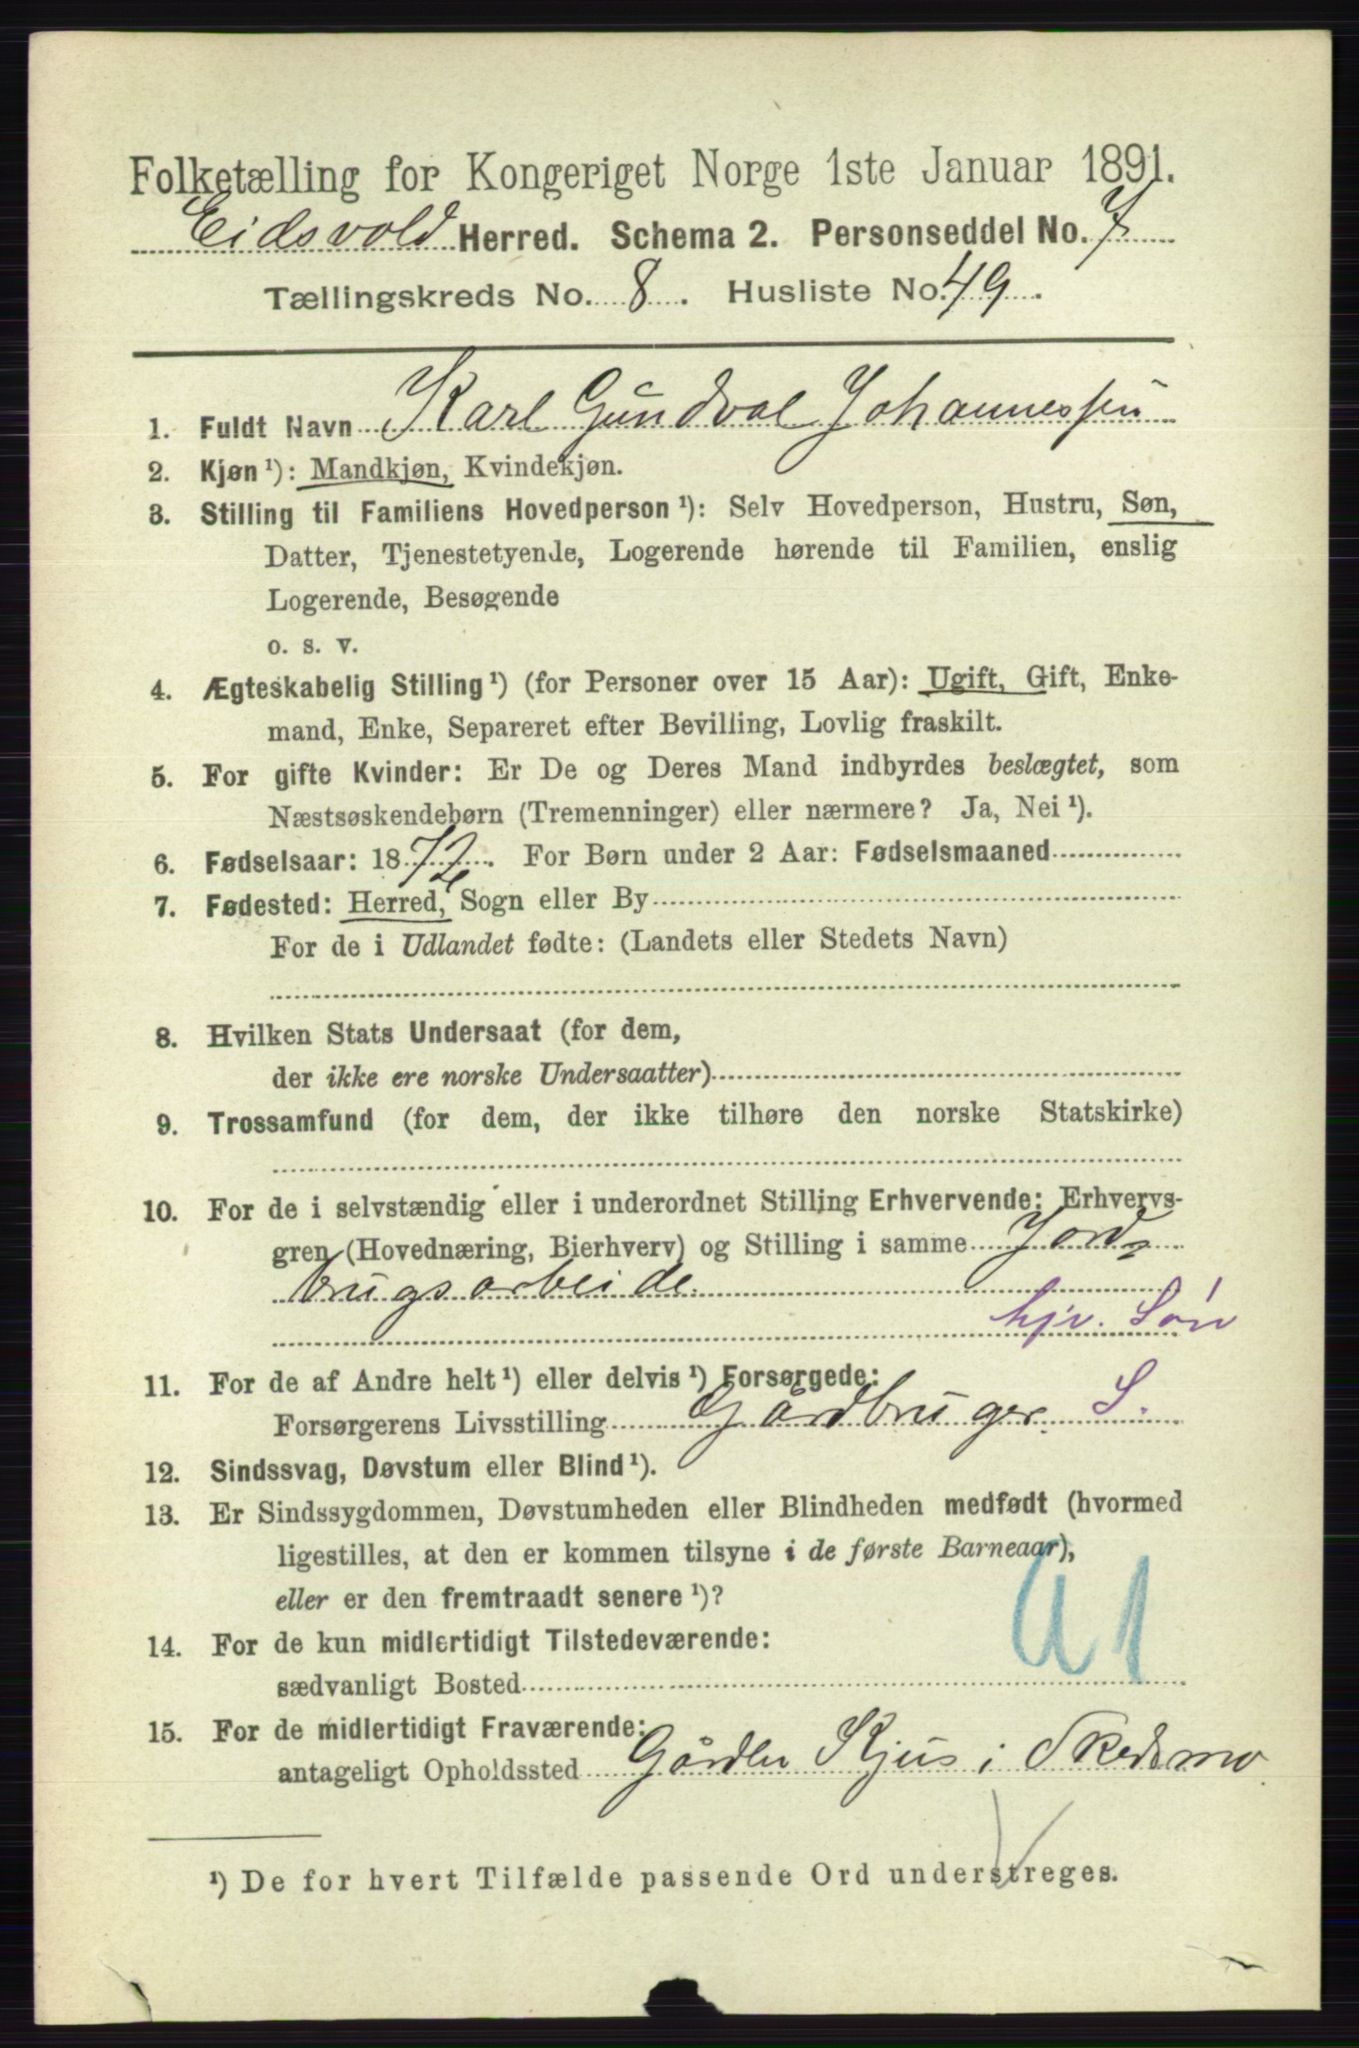 Folketælling for Kongeriget Norge 1ste Januar 1891.
Eidsvold Herred. Schema 2. Personseddel No. 7
Tællingskreds No. 8. Husliste No. 49.
1. Fuldt Navn Karl Gundval Johannessen
2. Kjøn ¹): Mandkjøn, Kvindekjøn.
3. Stilling til Familiens Hovedperson ¹): Selv Hovedperson, Hustru, Søn,
Datter, Tjenestetyende, Logerende hørende til Familien, enslig
Logerende, Besøgende
o. s. v.
4. Ægteskabelig Stilling ¹) (for Personer over 15 Aar): Ugift, Gift, Enke-
mand, Enke, Separeret efter Bevilling, Lovlig fraskilt.
5. For gifte Kvinder: Er De og Deres Mand indbyrdes beslægtet, som
Næstsøskendebørn (Tremenninger) eller nærmere? Ja, Nei ¹).
6. Fødselsaar: 1872. For Børn under 2 Aar: Fødselsmaaned
7. Fødested: Herred, Sogn eller By
For de i Udlandet fødte: (Landets eller Stedets Navn)
8. Hvilken Stats Undersaat (for dem,
der ikke ere norske Undersaatter)
9. Trossamfund (for dem, der ikke tilhøre den norske Statskirke)
10. For de i selvstændig eller i underordnet Stilling Erhvervende: Erhvervs-
gren (Hovednæring, Bierhverv) og Stilling i samme Jord-
brugsarbeide.
hjv. Søn
11. For de af Andre helt ¹) eller delvis ¹) Forsørgede:
Forsørgerens Livsstilling Gårdbruger. S.
12. Sindssvag, Døvstum eller Blind ¹).
13. Er Sindssygdommen, Døvstumheden eller Blindheden medfødt (hvormed
ligestilles, at den er kommen tilsyne i de første Barneaar),
eller er den fremtraadt senere ¹)?
14. For de kun midlertidigt Tilstedeværende:
sædvanligt Bosted
15. For de midlertidigt Fraværende:
antageligt Opholdssted Gården Kjus i Skedsmo
¹) De for hvert Tilfælde passende Ord understreges.